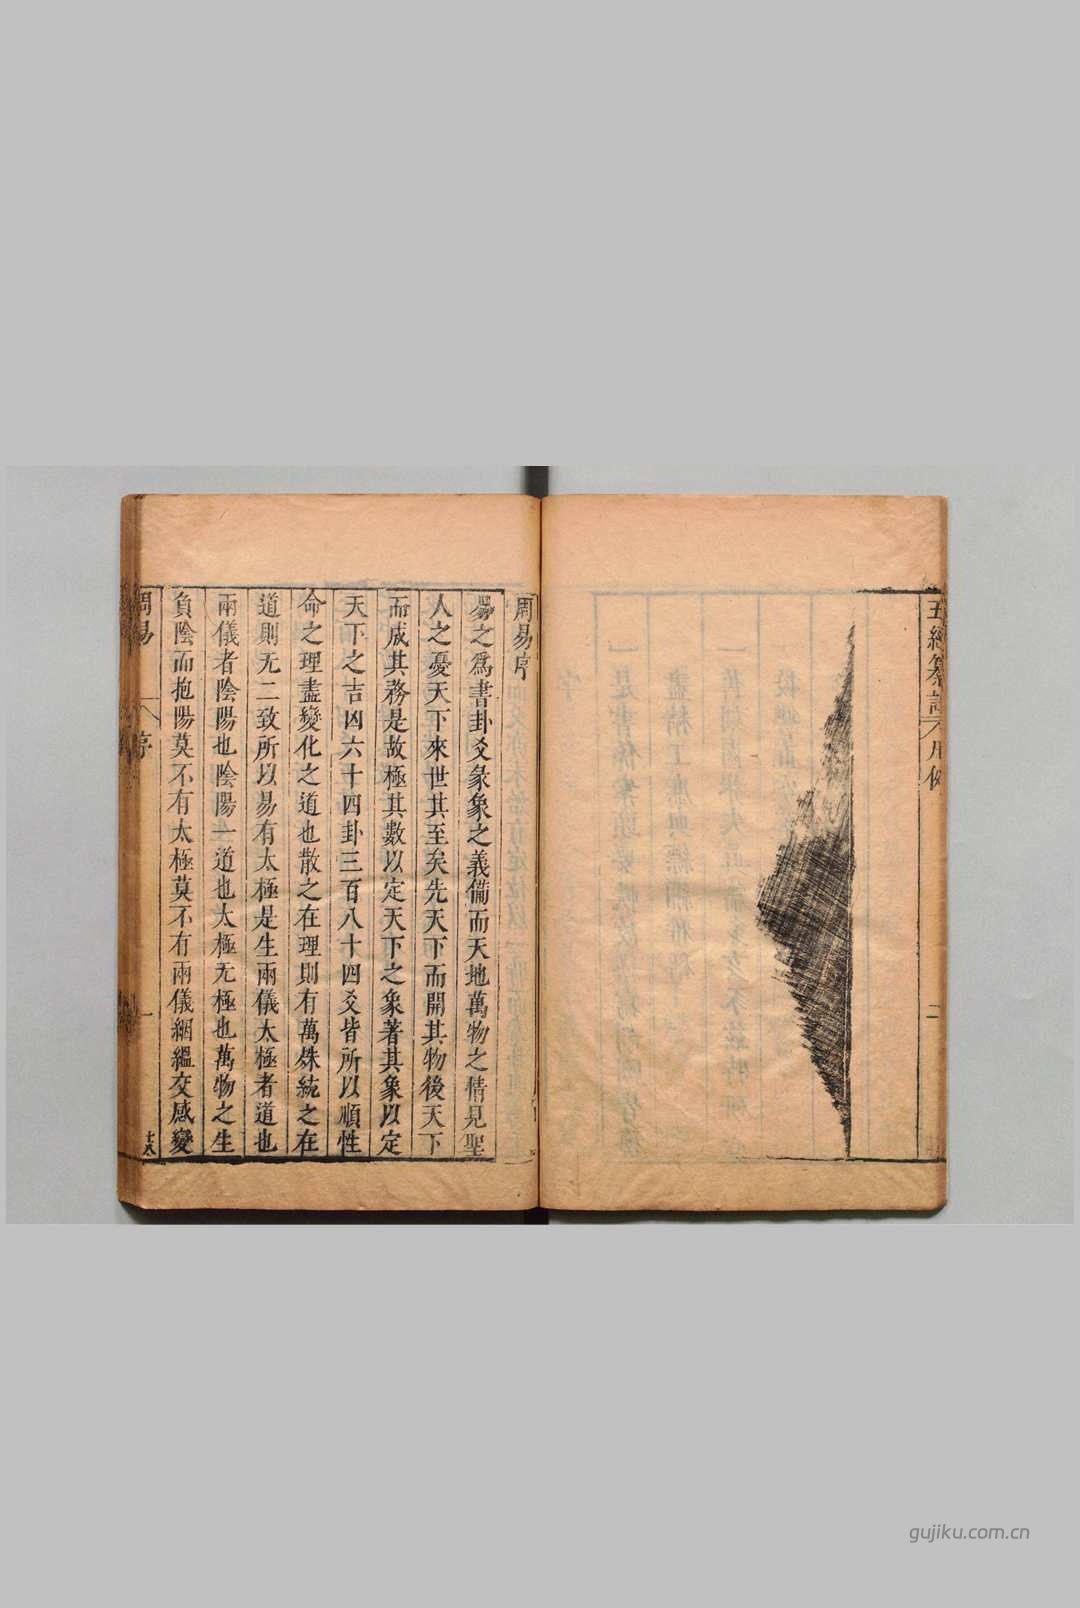 五經纂註
凡例
二
周易序
易之爲書卦爻彖象之義備而天地萬物之情見聖
人之憂天下來世其至矣先天下而開其物後天下
而成其務是故極其數以定天下之象著其象以定
天下之吉凶六十四卦三百八十四爻皆所以順性
命之理盡變化之道也散之在理則有萬殊統之在
道則无二致所以易有太極是生兩儀太極者道也
兩儀者陰陽也陰陽一道也太極无極也萬物之生
負陰而抱陽莫不有太極莫不有兩儀絪縕交感變
周易
序
一
gujiku.com.cn